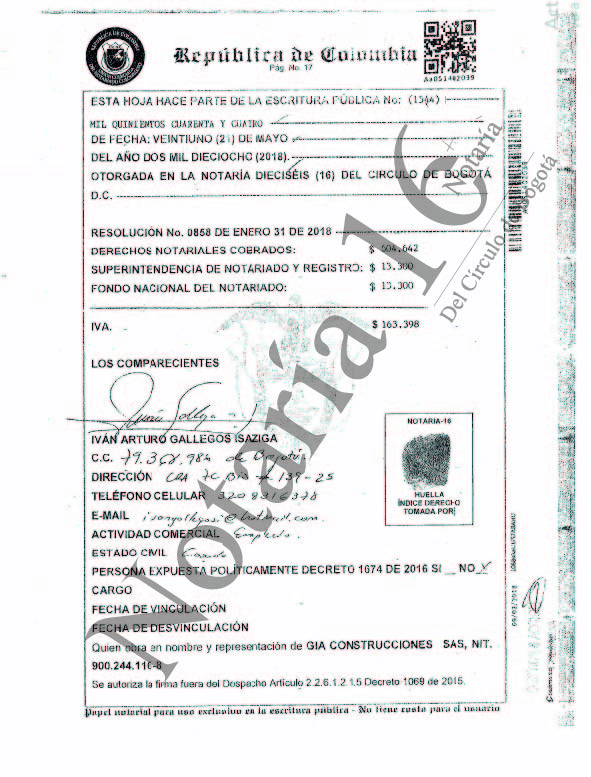 República de Colombia
Pág. No. 17
Aa051402039
ESTA HOJA HACE PARTE DE LA ESCRITURA PÚBLICA No: (1544)
MIL QUINIENTOS CUARENTA Y CUATRO
DE FECHA: VEINTIUNO (21) DE MAYO
DEL AÑO DOS MIL DIECIOCHO (2018).
OTORGADA EN LA NOTARÍA DIECISÉIS (16) DEL CIRCULO DE BOGOTÁ
D.C.
RESOLUCIÓN No. 0858 DE ENERO 31 DE 2018
DERECHOS NOTARIALES COBRADOS: $ 604.642
SUPERINTENDENCIA DE NOTARIADO Y REGISTRO: $ 13.300
FONDO NACIONAL DEL NOTARIADO: $ 13.300
IVA. $ 163.398
LOS COMPARECIENTES
IVÁN ARTURO GALLEGOS ISAZIGA
C.C. 79.368.984 de Bogotá
DIRECCIÓN CRA 7C BIS # 139-25
TELÉFONO CELULAR 3208316378
E-MAIL
ACTIVIDAD COMERCIAL Empleado.
ESTADO CIVIL Casado
PERSONA EXPUESTA POLÍTICAMENTE DECRETO 1674 DE 2016 SI __ NO X
CARGO
FECHA DE VINCULACIÓN
FECHA DE DESVINCULACIÓN
Quien obra en nombre y representación de GIA CONSTRUCCIONES SAS, NIT.
900.244.116-8
Se autoriza la firma fuera del Despacho Artículo 2.2.6.1.2.1.5 Decreto 1069 de 2015.
NOTARIA-16
HUELLA
ÍNDICE DERECHO
TOMADA POR
Papel notarial para uso exclusivo en la escritura pública - No tiene costo para el usuario
Notaría 16
Notaría
Del Círculo de Bogotá